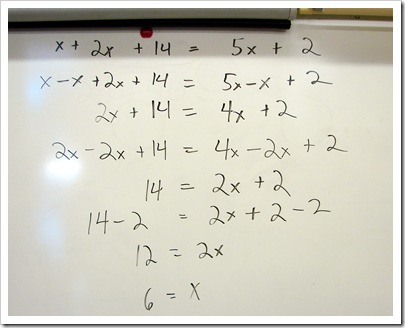 x + 2x + 14 = 5x + 2
x - x + 2x + 14 = 5x - x + 2
2x + 14 = 4x + 2
2x - 2x + 14 = 4x - 2x + 2
14 = 2x + 2
14 - 2 = 2x + 2 - 2
12 = 2x
6 = x